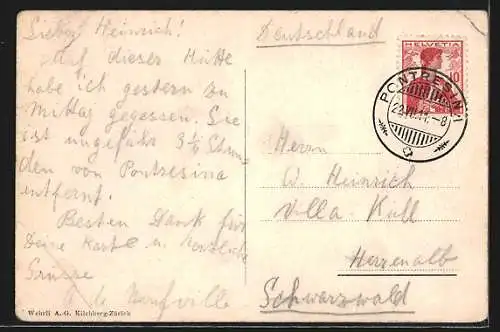 Lieber Heinrich!
Auf dieser Hütte
habe ich gestern zu
Mittag gegessen. Sie
ist ungefähr 3½ Stun
den von Pontresina
entfernt.
Besten Dank für
Deine Karte u. herzliche
Grüsse
de Neufville
Wehrli A.-G. Kilchberg-Zürich
Deutschland
HELVETIA
10
PONTRESINA
Herrn
W. Heinrich
Villa Kull
Herrenalb
Schwarzwald